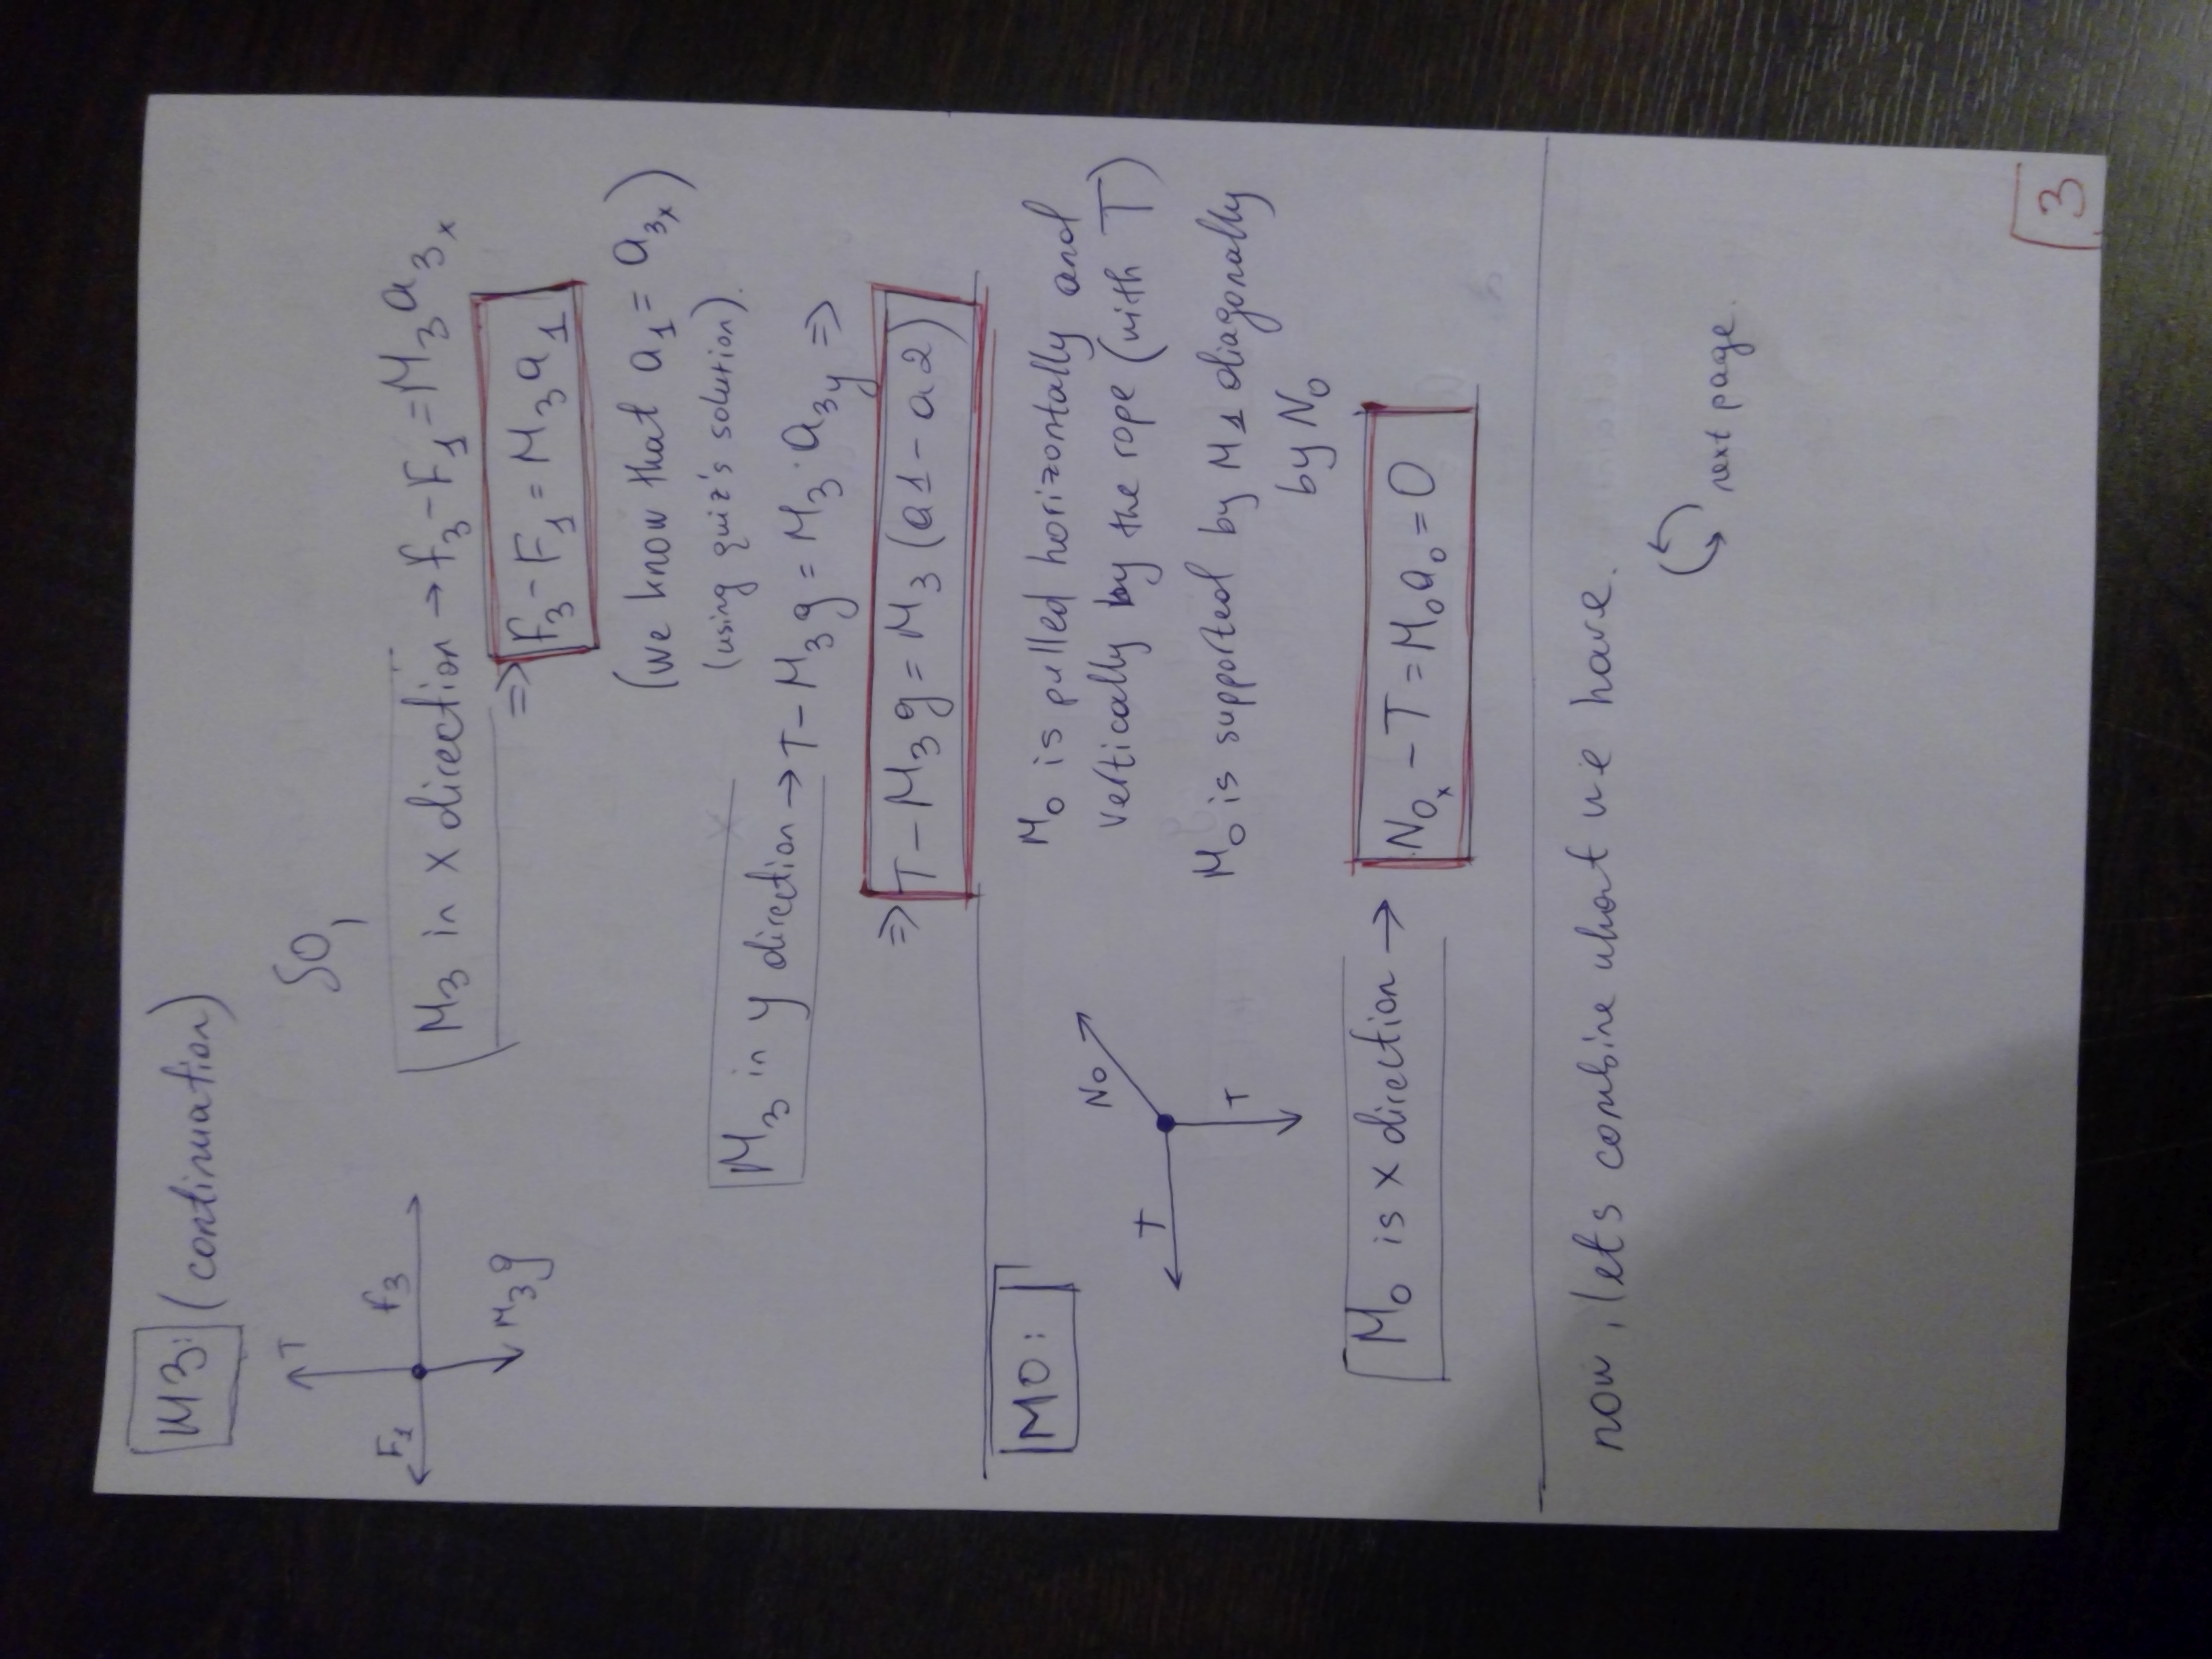 M3: (continuation)
T
F1 F3
M3g
SO,
M3 in x direction → F3 - F1 = M3 a3x
⇒ F3 - F1 = M3 a1
(we know that a1 = a3x)
(using quiz's solution).
M3 in y direction → T - M3g = M3 · a3y ⇒
⇒ T - M3g = M3 (a1 - a2)
M0:
N0
T
T
M0 is pulled horizontally and
vertically by the rope (with T)
M0 is supported by M1 diagonally
by N0
M0 is x direction → N0x - T = M0a0 = 0
now, lets combine what we have.
next page.
3